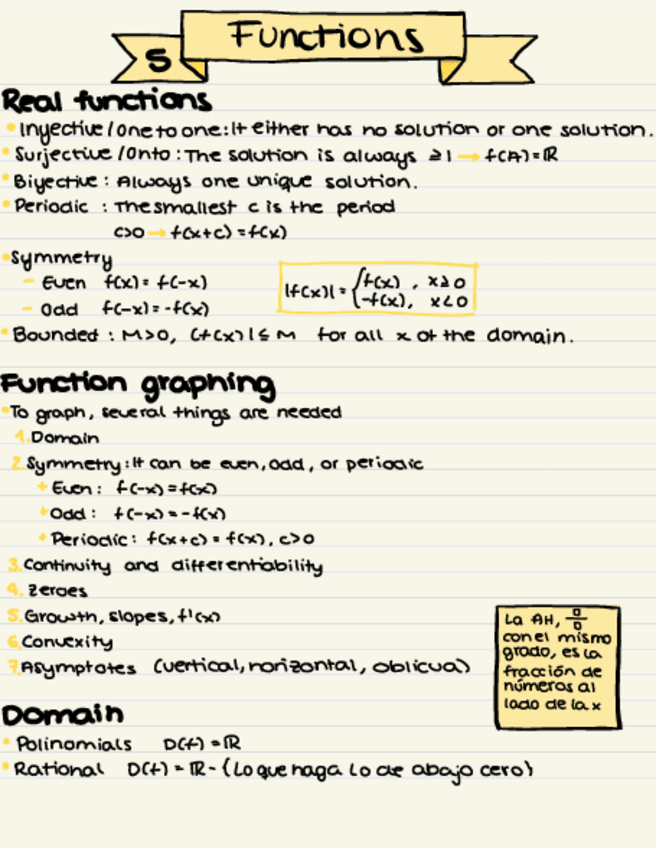 5
Functions
Real functions
• Inyective/One to one: It either has no solution or one solution.
• Surjective/Onto: The solution is always ≥1 → f(A)=ℝ
• Biyective: Always one unique solution.
• Periodic : The smallest c is the period
c>0 → f(x+c) = f(x)
• Symmetry
- Even f(x) = f(-x)
- Odd f(-x) = -f(x)
|f(x)| = { f(x) , x≥0
-f(x), x<0
• Bounded : M>0, |f(x)| ≤ M for all x of the domain.
Function graphing
• To graph, several things are needed
1. Domain
2. Symmetry: It can be even, odd, or periodic
+ Even: f(-x) = f(x)
+ Odd: f(-x) = -f(x)
+ Periodic: f(x+c) = f(x), c>0
3. Continuity and differentiability
4. Zeroes
5. Growth, slopes, f'(x)
6. Convexity
7. Asymptotes (vertical, horizontal, oblicua)
La AH, □/□
con el mismo
grado, es la
fracción de
números al
lado de la x
Domain
• Polinomials D(f) = ℝ
• Rational D(f) = ℝ - {Lo que haga lo de abajo cero}